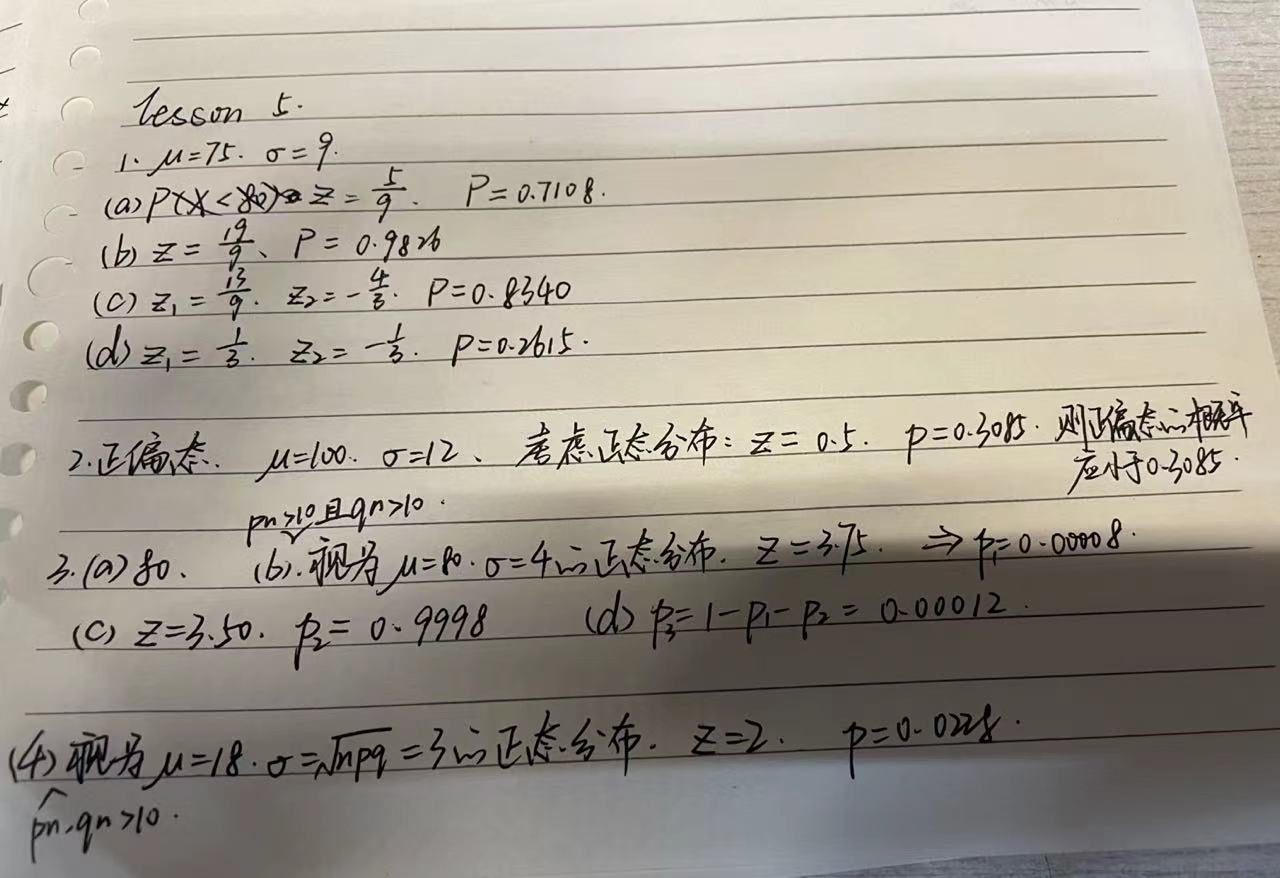 lesson 5.
1. μ=75. σ=9.
(a) P(X<80) z = 5/9. P=0.7108.
(b) z = 19/9、 P = 0.9826
(c) z₁ = 13/9. z₂ = -4/3. P=0.8340
(d) z₁ = 1/3. z₂ = -1/3. P=0.2615.
2.正偏态. μ=100. σ=12、 考虑正态分布: z = 0.5. p=0.3085. 则正偏态的概率
应小于0.3085.
pn>10且qn>10.
3.(a) 80. (b).视为μ=80.σ=4的正态分布. z=3.75. ⇒ p₁=0.00008.
(c) z=3.50. p₂ = 0.9998 (d) p₃=1-p₁-p₂ = 0.00012.
(4) 视为μ=18.σ=√npq=3的正态分布. z=2. p=0.0228.
pn、qn>10.